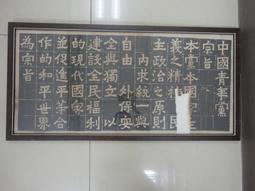 中國青年黨
宗旨
本黨本國
義之精神
主政治之原則
內求統一與
自由 外保安
全與獨立以
建設全民福利
的現代國家
並促進平等合
作的和平世界
為宗旨